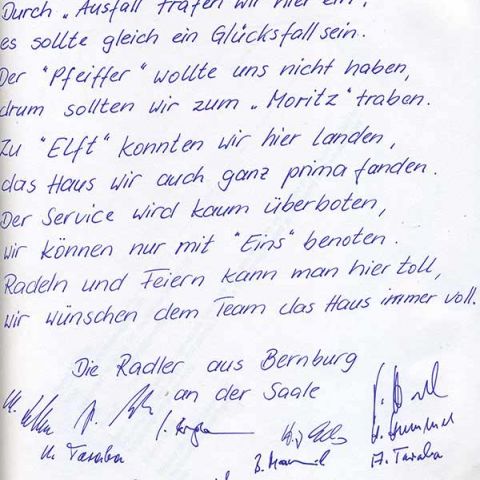 Durch „Ausfall" trafen wir hier ein,
es sollte gleich ein Glücksfall sein.
Der "Pfeiffer" wollte uns nicht haben,
drum sollten wir zum „Moritz" traben.
Zu "Elft" konnten wir hier landen,
das Haus wir auch ganz prima fanden.
Der Service wird kaum überboten,
wir können nur mit "Eins" benoten.
Radeln und Feiern kann man hier toll,
wir wünschen dem Team das Haus immer voll.
Die Radler aus Bernburg
an der Saale
H. Hummel
K. Taraba
A. Taraba